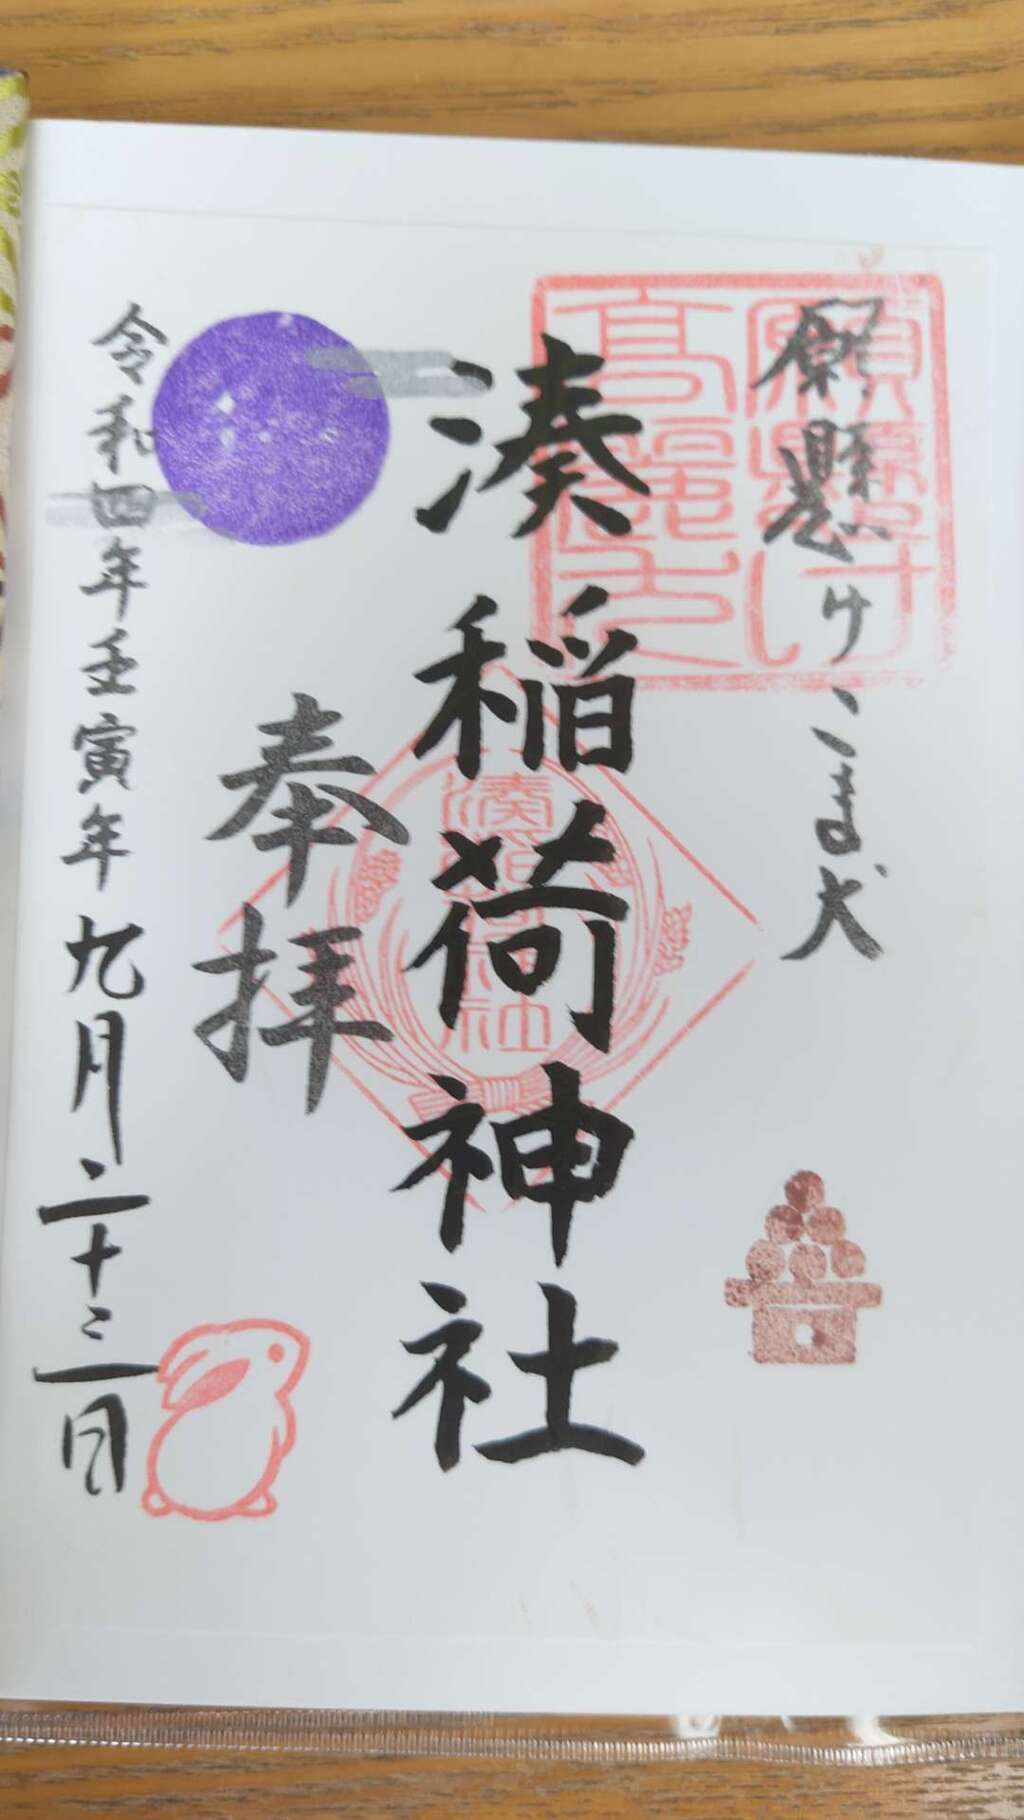 願懸けこま犬
願懸け高麗犬
湊稲荷神社
湊稲荷神社
奉拝
令和四年壬寅年九月二十三日